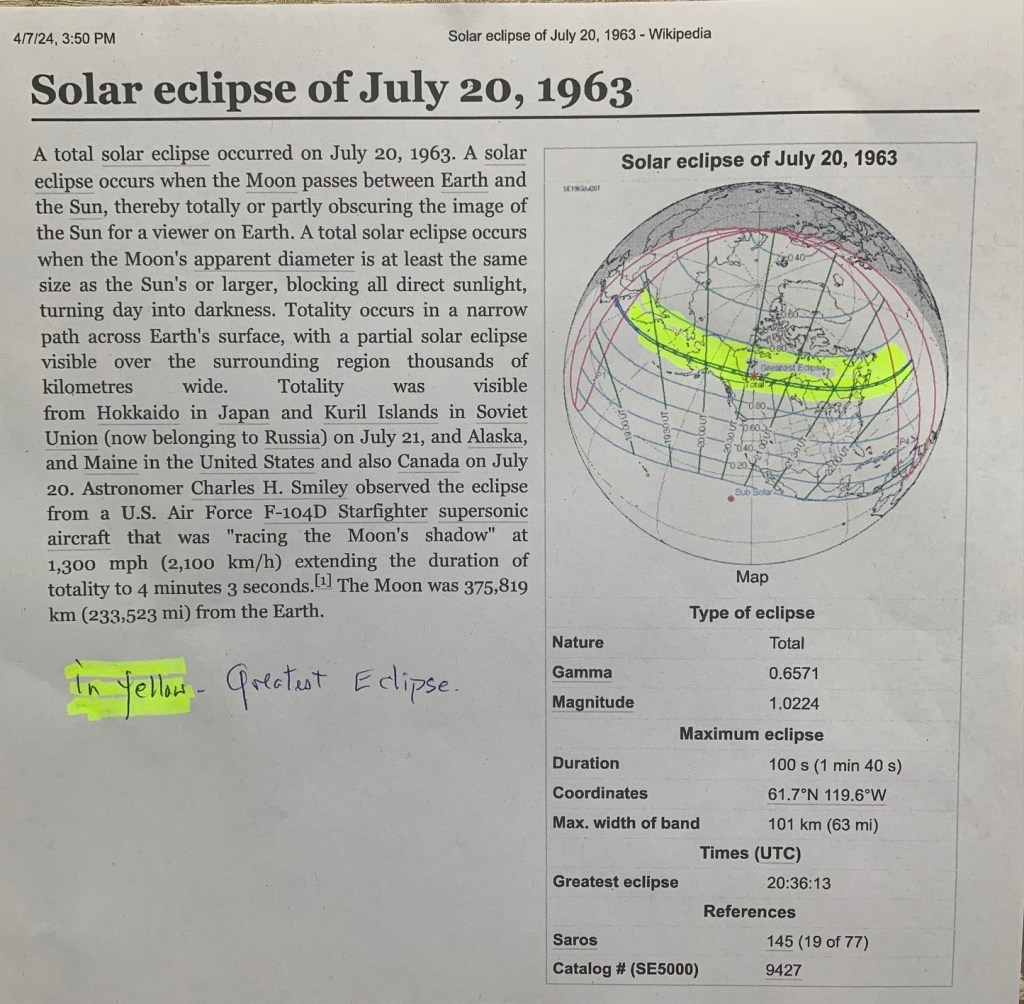 4/7/24, 3:50 PM
Solar eclipse of July 20, 1963 - Wikipedia
Solar eclipse of July 20, 1963
A total solar eclipse occurred on July 20, 1963. A solar
eclipse occurs when the Moon passes between Earth and
the Sun, thereby totally or partly obscuring the image of
the Sun for a viewer on Earth. A total solar eclipse occurs
when the Moon's apparent diameter is at least the same
size as the Sun's or larger, blocking all direct sunlight,
turning day into darkness. Totality occurs in a narrow
path across Earth's surface, with a partial solar eclipse
visible over the surrounding region thousands of
kilometres wide. Totality was visible
from Hokkaido in Japan and Kuril Islands in Soviet
Union (now belonging to Russia) on July 21, and Alaska,
and Maine in the United States and also Canada on July
20. Astronomer Charles H. Smiley observed the eclipse
from a U.S. Air Force F-104D Starfighter supersonic
aircraft that was "racing the Moon's shadow" at
1,300 mph (2,100 km/h) extending the duration of
totality to 4 minutes 3 seconds.[1] The Moon was 375,819
km (233,523 mi) from the Earth.
In yellow - Greatest Eclipse.
Solar eclipse of July 20, 1963
Greatest Eclipse
Total
0.80
0.60
0.40
0.20
Sub Solar
Map
Type of eclipse
Nature Total
Gamma 0.6571
Magnitude 1.0224
Maximum eclipse
Duration 100 s (1 min 40 s)
Coordinates 61.7°N 119.6°W
Max. width of band 101 km (63 mi)
Times (UTC)
Greatest eclipse 20:36:13
References
Saros 145 (19 of 77)
Catalog # (SE5000) 9427